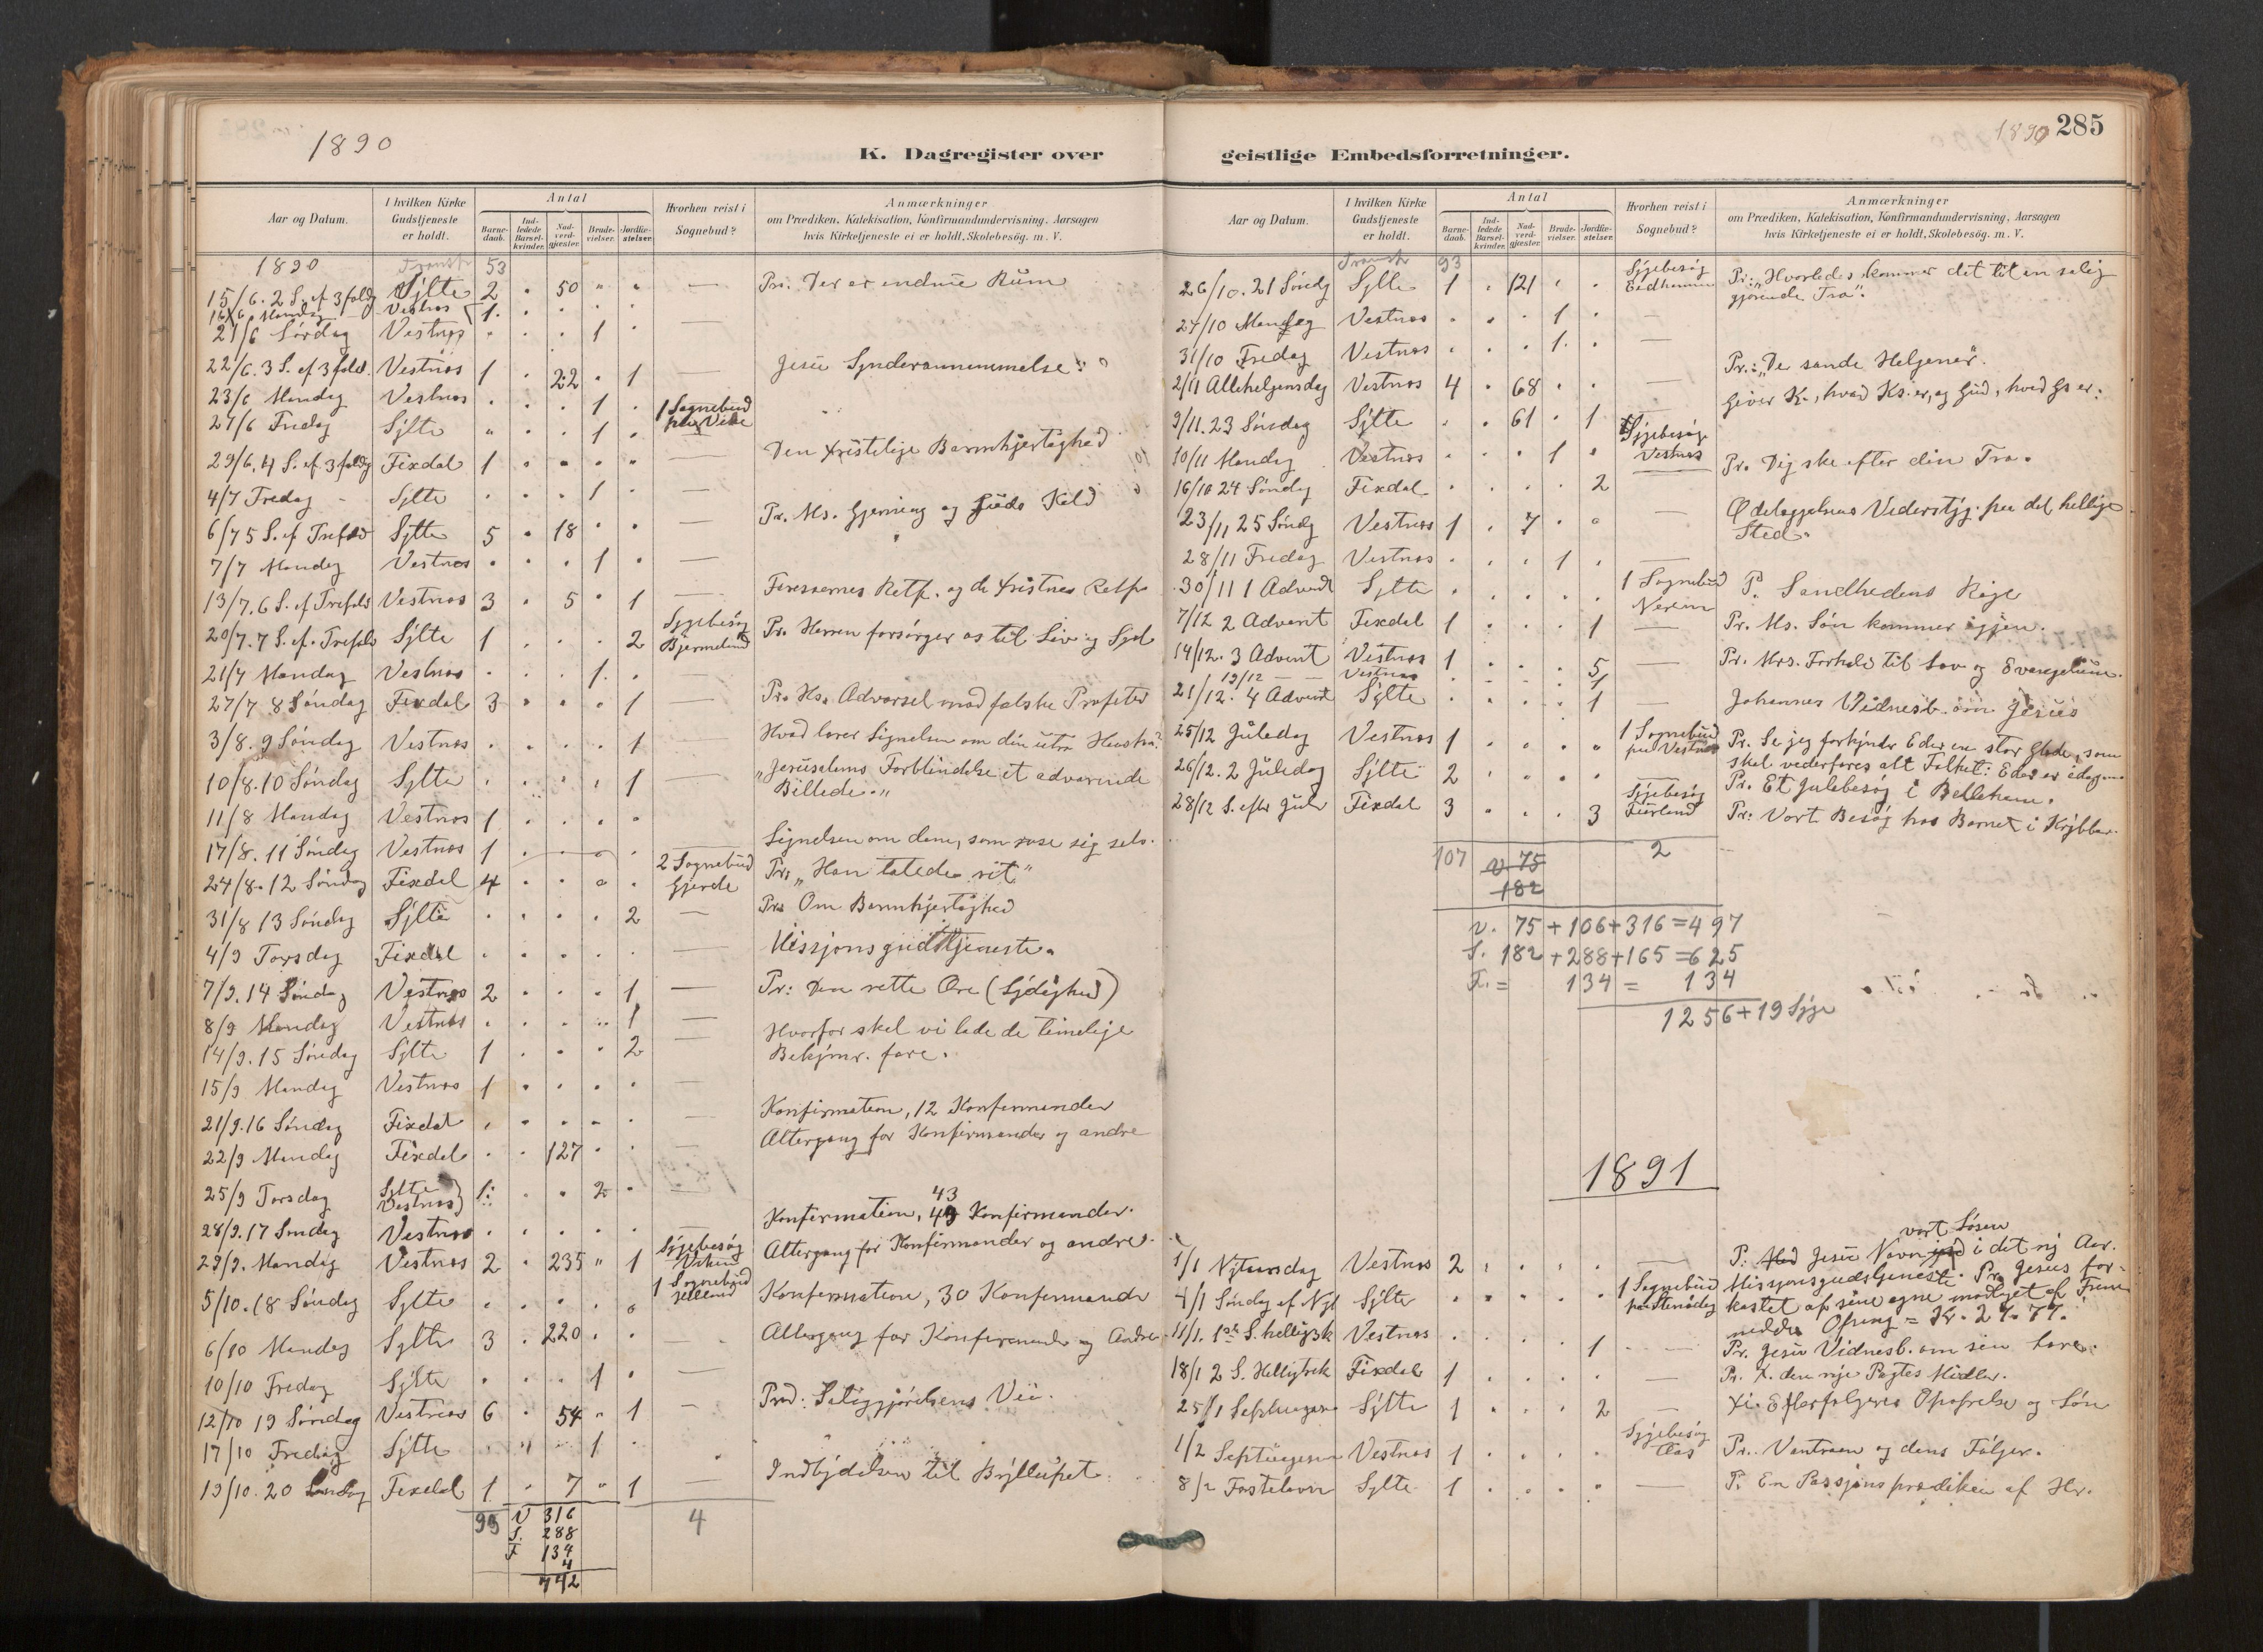 1890
K. Dagregister over
Aar og Datum.
I hvilken Kirke Gudstjeneste er holdt.
Antal
Barne-daab.
Ind-ledede Barsel-kvinder.
Nad-verd-gjester.
Brude-vielser.
Jordfæ-stelser.
Hvorhen reist i Sognebud?
Anmærkninger
om Prædiken, Katekisation, Konfirmandundervisning, Aarsagen
hvis Kirketjeneste ei er holdt, Skolebesög. m. V.
1890 Transp 53
15/6. 2 S. ef 3 fold Sylte 2 . 50 " . — Pr. Der er endnu Rum
16/6 Mandag Vestnæs 1 . . . .
21/6 Lørdag Vestnæs . . . 1 . —
22/6. 3 S. ef 3 fold. Vestnæs 1 . 22 . 1 — Jesu Synderannammelse.
23/6 Mandag Vestnæs . . . 1 .
27/6 Fredag Sylte " . . 1 . 1 Sognebud
29/6. 4 S. ef. 3 foldg Fixdal 1 . . . . — Den kristelige Barmhjertighed
4/7 Fredag - Sylte . . . 1 . —
6/7 5 S. ef Trefold Sylte 5 . 18 . . — Pr. Ms. Gjerning og Guds Kald
7/7 Mandag Vestnæs . . . 1 . —
13/7. 6 S. ef Trefold Vestnæs 3 . 5 . 1 — Farisæernes Retf. og de Kristnes Retf.
20/7. 7 S. ef. Trefold Sylte 1 . . . 2 Sygebesøg Bjermeland Pr. Herren forsørger os til Liv og Sjæl
21/7 Mandag Vestnæs . . . 1. . —
27/7 8 Søndag Fixdal 3 . . . 1 — Pr. Hs. Advarsel mod falske Profeter
3/8. 9 Søndag Vestnæs . . . . 1 — Hvad lærer Lignelsen om din utro Hush.?
10/8. 10 Søndag Sylte . . . . 1 — "Jerusalems Forblindelse et advarende
Billede."
11/8 Mandag Vestnæs 1 . . . .
17/8. 11 Søndag Vestnæs 1 . . . . — Lignelsen om dem, som rose sig selv.
24/8. 12 Søndag Fixdal 4 . . . . 2 Sognebud Gjerde Pr. "Han talede ret"
31/8 13 Søndag Sylte . . . . 2 — Pr. Om Barmhjertighed
4/9 Torsdag Fixdal . . . . . — Missjonsgudstjeneste.
7/9. 14 Søndag Vestnæs 2 . . . 1 — Pr: Den rette Ære (Lydighed)
8/9 Mandag Vestnæs . . . . 1 —
14/9. 15 Søndag Sylte 1 . . . 2 Hvorfor skal vi lade de timelige
Bekymr. fare.
15/9 Mandag Vestnæs 1 . . . . —
21/9. 16 Søndag Fixdal . . . . . — Konfirmation, 12 Konfirmander
22/9 Mandag Fixdal . . 127 . . — Altergang for Konfirmander og andre
25/9 Torsdag Sylte Vestnæs 1 . . 2 . —
43
28/9. 17 Søndag Vestnæs . . . . . — Konfirmation, Konfirmander.
29/9. Mandag Vestnæs 2 . 235 " 1 Sygebesøg Viken Altergang for Konfirmander og andre.
5/10. 18 Søndag Sylte . . . . . 1 Sognebud Konfirmation, 30 Konfirmander
6/10 Mandag Sylte 3 . 220 . . — Altergang for Konfirmander og Andre
10/10 Fredag Sylte . . . 1 . —
12/10 19 Søndag Vestnæs 6 . 54 " 1 — Præd: Saliggjørelsens Vei.
17/10 Fredag Sylte . " . 1 .
19/10. 20 Søndag Fixdal 1 . 7 " 1 — Indbydelsen til Bryllupet.
93 V 316 4
S. 288
F 134
4
742
1890 285
geistlige Embedsforretninger.
Aar og Datum.
I hvilken Kirke Gudstjeneste er holdt.
Antal
Barne-daab.
Ind-ledede Barsel-kvinder.
Nad-verd-gjester.
Brude-vielser.
Jordfæ-stelser.
Hvorhen reist i Sognebud?
Anmærkninger
om Prædiken, Katekisation, Konfirmandundervisning, Aarsagen
hvis Kirketjeneste ei er holdt, Skolebesög. m. V.
Transp 93
26/10. 21 Søndg Sylte 1 . 121 . . Sygebesøg Eidhammer Pr: "Hvorledes kommer det til en salig
gjørende Tro".
27/10 Mandag Vestnæs . . . 1 . —
31/10 Fredag Vestnæs . . . 1. . —
2/11 Allehelgensdag Vestnæs 4 . 68 . . — Pr.: "De sande Helgener".
9/11. 23 Søndag Sylte . . 61 . 1 Giver K., hvad Ks. er, og Gud, hvad Gs er.
10/11 Mandag Vestnæs . . . 1 . Sygebesøg Vestnæs
16/10 24 Søndg Fixdal . . . . 2 — Pr. Dig ske efter din Tro.
23/11 25 Søndg Vestnæs 1 . 7 . . — Ødelæggelsens Vederstyg. paa det hellige
Sted.
28/11 Fredag Vestnæs . . . 1 . —
30/11 1 Advent Sylte . . . . . 1 Sognebud P. Sandhedens Rige
7/12 2 Advent Fixdal 1 . . . 1 Pr. Ms. Søn kommer igjen.
14/12. 3 Advent Vestnæs 1 . . . 5 — Pr. Forhold til Lov og Evangelium.
19/12 — — Vestnæs . . . . 1
21/12. 4 Advent Sylte . . . . 1 — Johannes Vidnesb. om Jesus
25/12 Juledag Vestnæs 1 . . . . 1 Sognebud paa Vestnæs Pr. Se jeg forkynder Eder en stor Glæde, som
skal vederfares alt Folket: Eder er idag
26/12. 2 Juledag Sylte 2 . . . . — Pr. Et Julebesøg i Bethlehem.
28/12 S. efter Jul Fixdal 3 . . . 3 Sygebesøg Fuerland Pr: Vort Besøg hos Barnet i Krybben.
107 V 75 2
182
V. 75 + 106 + 316 = 497
S. 182 + 288 + 165 = 625
F. = 134 = 134
1256 + 19 Syge
1891
vort Løsen
1/1 Nytaarsdag Vestnæs 2 . . . . — P: Jesu Navn i det ny Aar.
4/1 Søndag ef Nyt Sylte . . . . . 1 Sognebud Missjonsgudstjeneste. Pr. Jesus for-
kastet af sine egne modtaget af Frem
mede. Ofring = Kr. 27.77.
11/1. 1ste S. helligtrek Vestnæs . . . . 1 — Pr. Jesu Vidnesb. om sin Lære.
18/1 2 S. Helligtrek Fixdal 1 . . . . — Pr. X. den nye Pagtes Midler.
25/1 Sylte 1 . . . 2 — Xi. Efterfølgeres Opofrelse og Løn
1/2 Vestnæs 1 . . . . Sygebesøg Aas Pr. Vantroen og dens Følger.
8/2 Fastelavn Sylte 1 . . . . — P. En Passjonsprædiken af Hr.